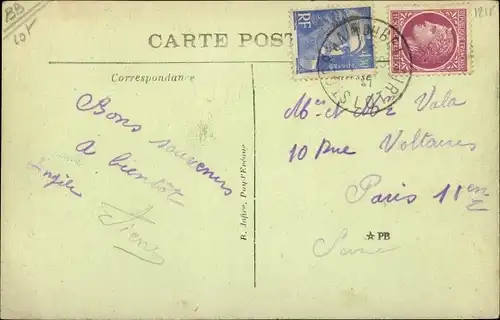 BB
10f
121F
CARTE POST
RF
LOT
Correspondance
Bons souvenirs
A bientôt
Angèle
Pierre
R. Jofre, Puy-l'Evêque
Mr et Mme Vala
10 Rue Voltaires
Paris 11em
E
Seine
★ PB